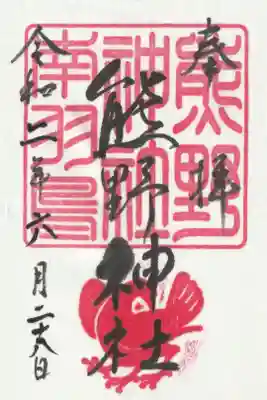 奉拝
熊野神社
令和二年六月二十八日
熊野
神社
南羽鳥